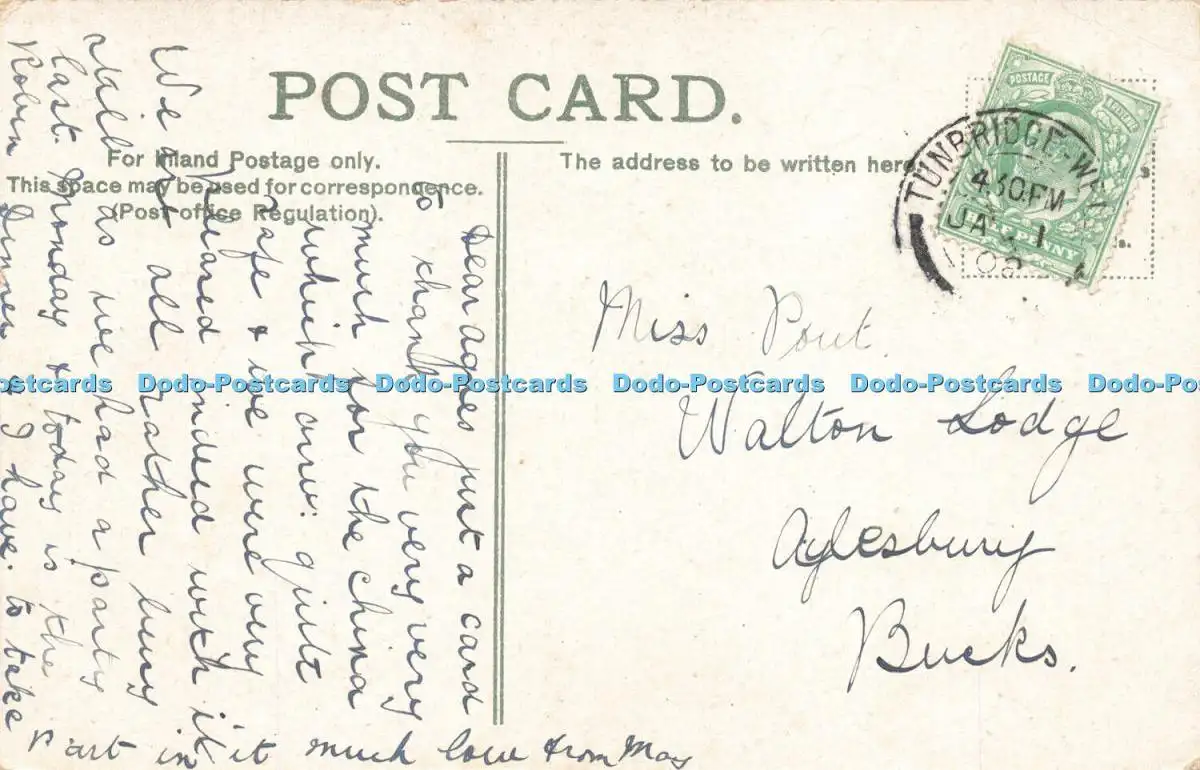 POST CARD.
For Inland Postage only.
This space may be used for correspondence.
(Post office Regulation).
The address to be written here
POSTAGE
HALFPENNY
TUNBRIDGE-WELLS
4.30.PM
JA
Miss Pout.
Walton Lodge
Aylesbury
Bucks.
Dear Agnes just a card
to thank you very very
much for the china
which arriv: quite
safe & we were very
pleased indeed with it
We are all rather busy
still as we had a party
last. Monday & today is the
Robin Dinner & I have. to take
part in it much love from May
Dodo-Postcards Dodo-Postcards Dodo-Postcards Dodo-Postcards Dodo-Postcards